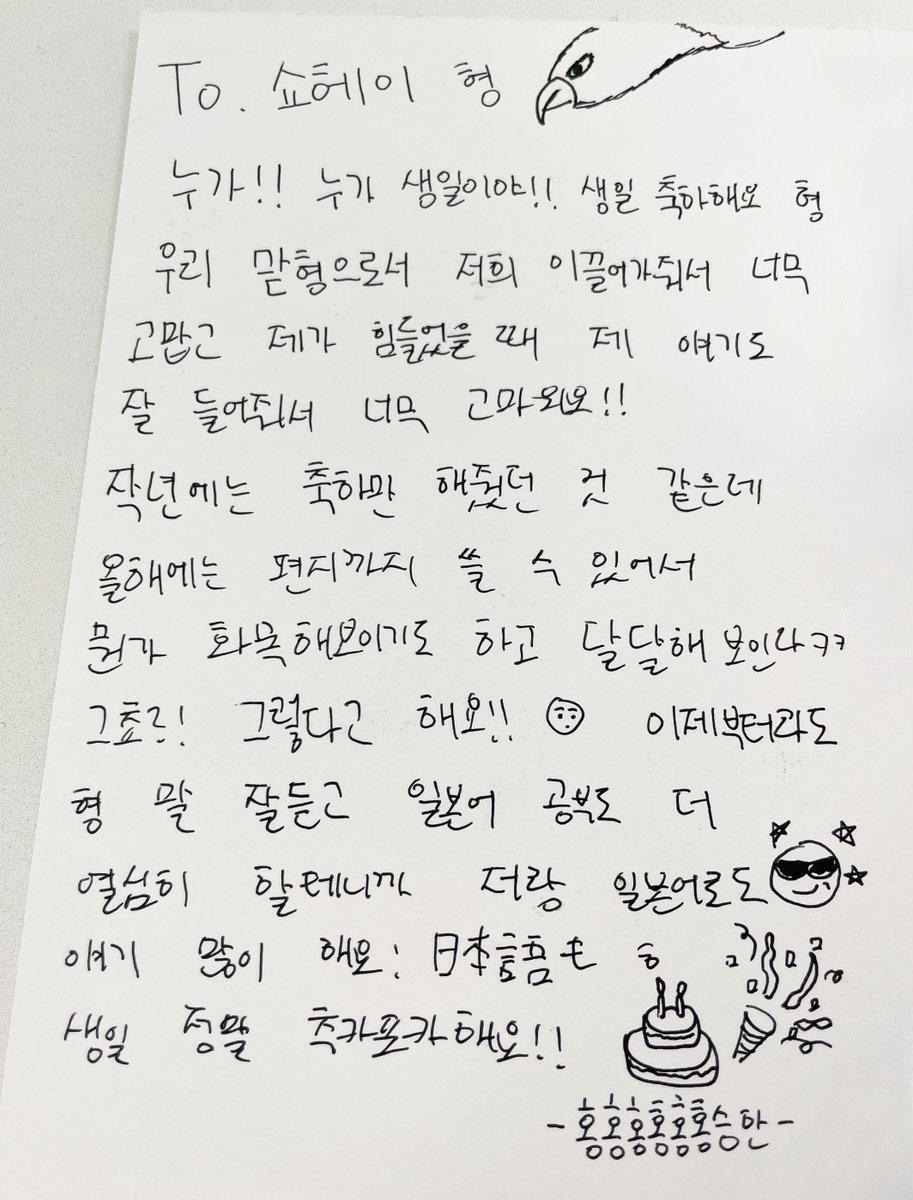 To. 쇼헤이 형
누가!! 누가 생일이야!! 생일 축하해요 형
우리 맏형으로서 저희 이끌어가줘서 너무
고맙고 제가 힘들었을 때 제 얘기도
잘 들어줘서 너무 고마워요!!
작년에는 축하만 해줬던 것 같은데
올해에는 편지까지 쓸 수 있어서
뭔가 화목해보이기도 하고 달달해 보인다ㅋㅋ
그쵸? 그렇다고 해요!! 이제부터라도
형 말 잘듣고 일본어 공부도 더
열심히 할테니까 저랑 일본어로도
얘기 많이 해요! 日本語も ㅎ
생일 정말 축카포카해요!!
-홍홍홍홍홍홍승한-